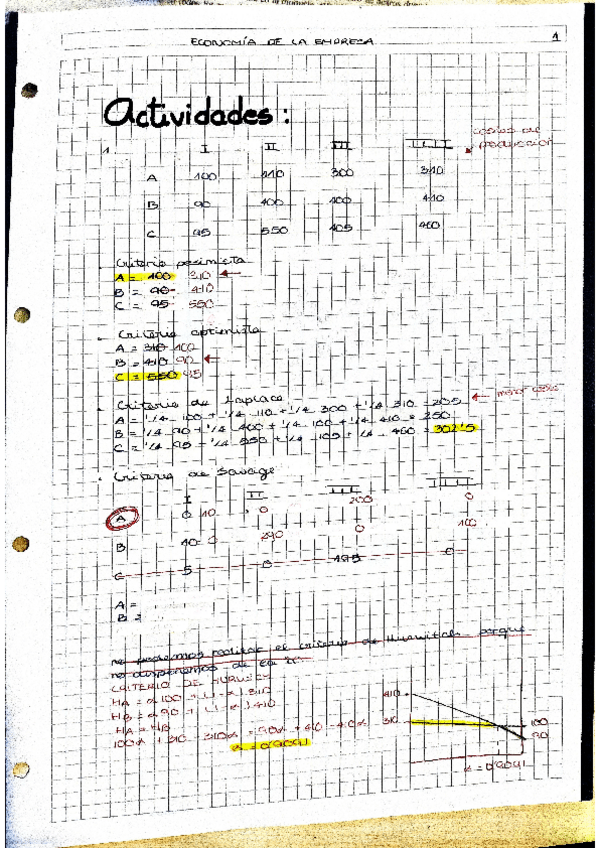 ECONOMÍA DE LA EMPRESA 1
Actividades:
costes de
1. I II III IIII producción
A 100 110 300 310
B 90 400 100 410
C 95 550 105 460
. Criterio pesimista
A = 100 310 ←
B = 90 410
C = 95 550
. Criterio optimista
A = 310 100
B = 410 90 ←
C = 550 95
. Criterio de Laplace ← menor coste
A = 1/4 · 100 + 1/4 · 110 + 1/4 · 300 + 1/4 · 310 = 205
B = 1/4 · 90 + 1/4 · 400 + 1/4 · 100 + 1/4 · 410 = 250
C = 1/4 · 95 + 1/4 · 550 + 1/4 · 105 + 1/4 · 460 = 302'5
. Criterio de Savage
I II III IIII
A 0 10 0 200 0
B 10 0 290 0 100
C 5 0 195 0
A =
B =
no podemos realizar el criterio de Hurwitch porque
no disponemos de
CRITERIO DE HURWICZ
HA = α 100 + (1 - α) 310
HB = α 90 + (1 - α) 410
HA = HB
100α + 310 - 310α = 90α + 410 - 410α
α = 0'9091
410
310 100
90
α = 0'9091